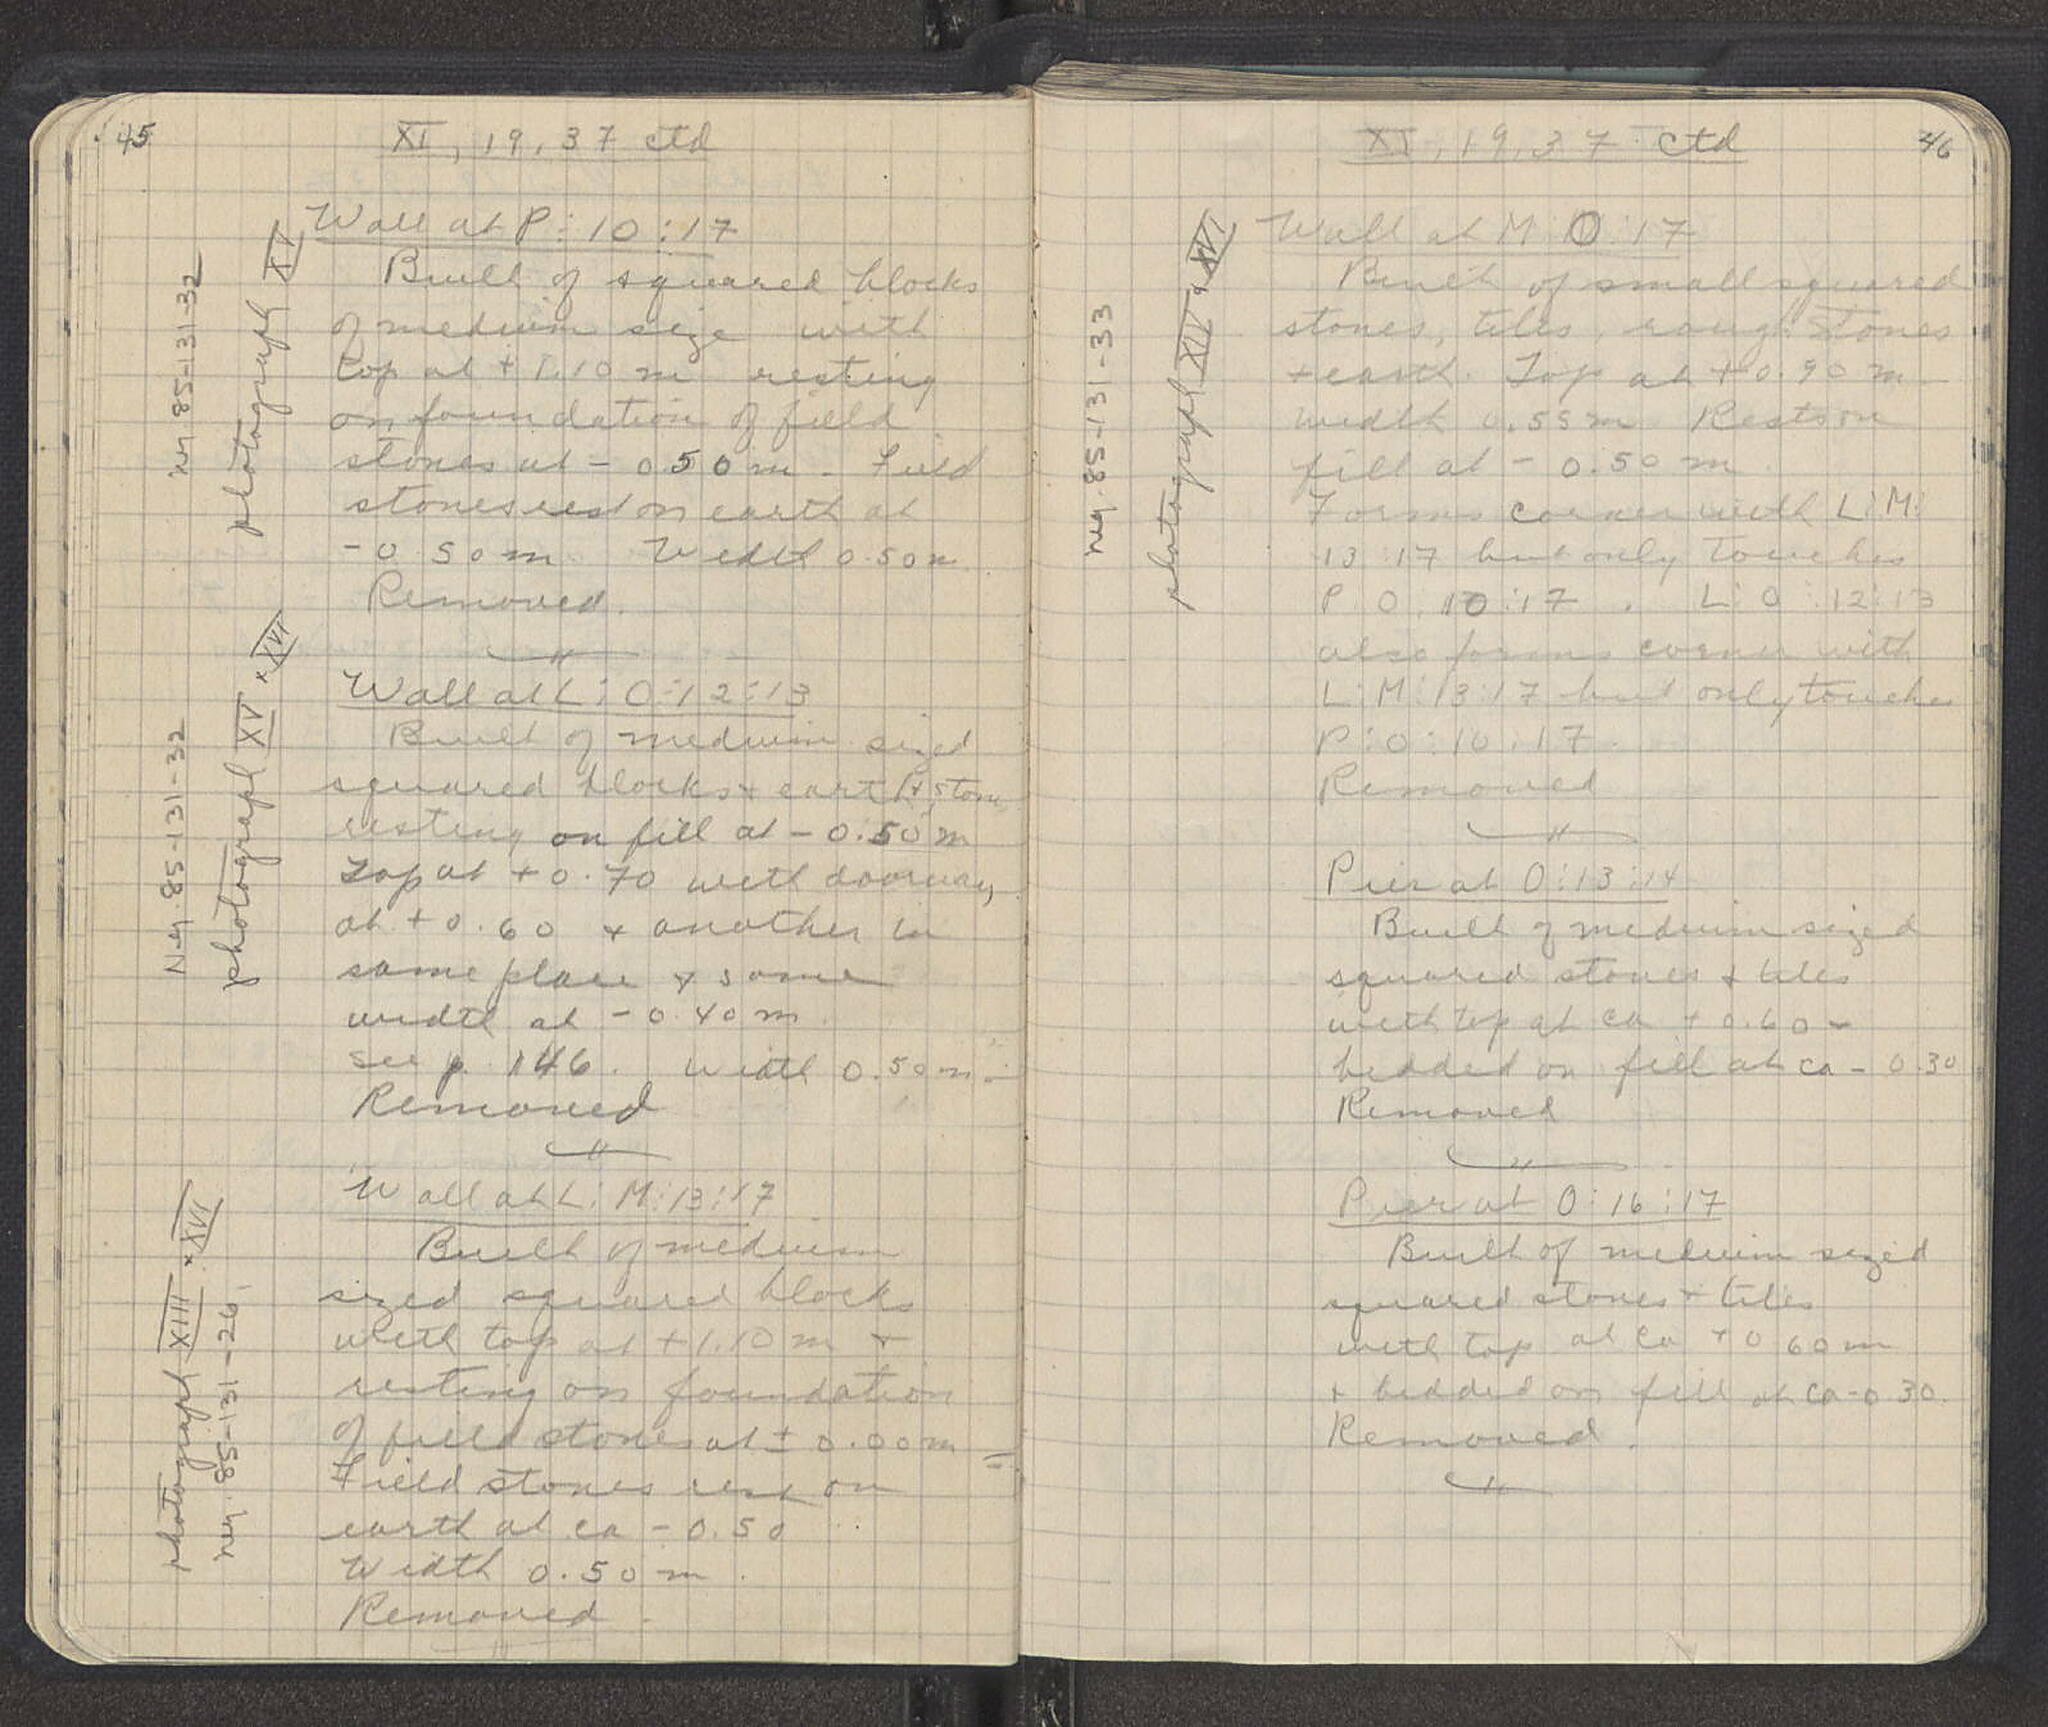 45
XI, 19, 37 ctd
Wall at P: 10:17
Built of squared blocks
of medium size with
top at +1.10 m resting
on foundation of field
stones at - 0.50 m. Field
stones rest on earth at
-0.50 m. Width 0.50 m
Removed.
neg. 85-131-32
photograph XV
Wall at L: O:12:13
Built of medium sized
squared blocks + earth + stone
resting on fill at - 0.50 m
Top at +0.70 with doorway
at +0.60 + another in
same place + same
width at -0.40 m.
see p. 146. Width 0.50 m.
Removed
Neg. 85-131-32
photograph XV + XVI
Wall at L: M:13:17
Built of medium
sized squared blocks
with top at +1.10 m +
resting on foundation
of field stones at ± 0.00 m =
Field stones rest on
earth at ca - 0.50
Width 0.50 m.
Removed.
photograph XIII + XVI
neg. 85-131-26
46
XI, 19, 37 ctd
Wall at M: O:17
Built of small squared
stones, tiles, rough stones
+ earth. Top at +0.90 m
width 0.55 m Rests on
fill at - 0.50 m.
Forms corner with L:M:
13:17 but only touches
P:O:10:17. L:O:12:13
also forms corner with
L:M:13:17 but only touches
P:O:10:17.
Removed
neg. 85-131-33
photograph XIV + XVI
Pier at O:13:14
Built of medium sized
squared stones + tiles
with top at ca +0.60 -
bedded on fill at ca - 0.30
Removed
Pier at O:16:17
Built of medium sized
squared stones + tiles
with top at ca +0.60 m
+ bedded on fill at ca -0.30.
Removed.